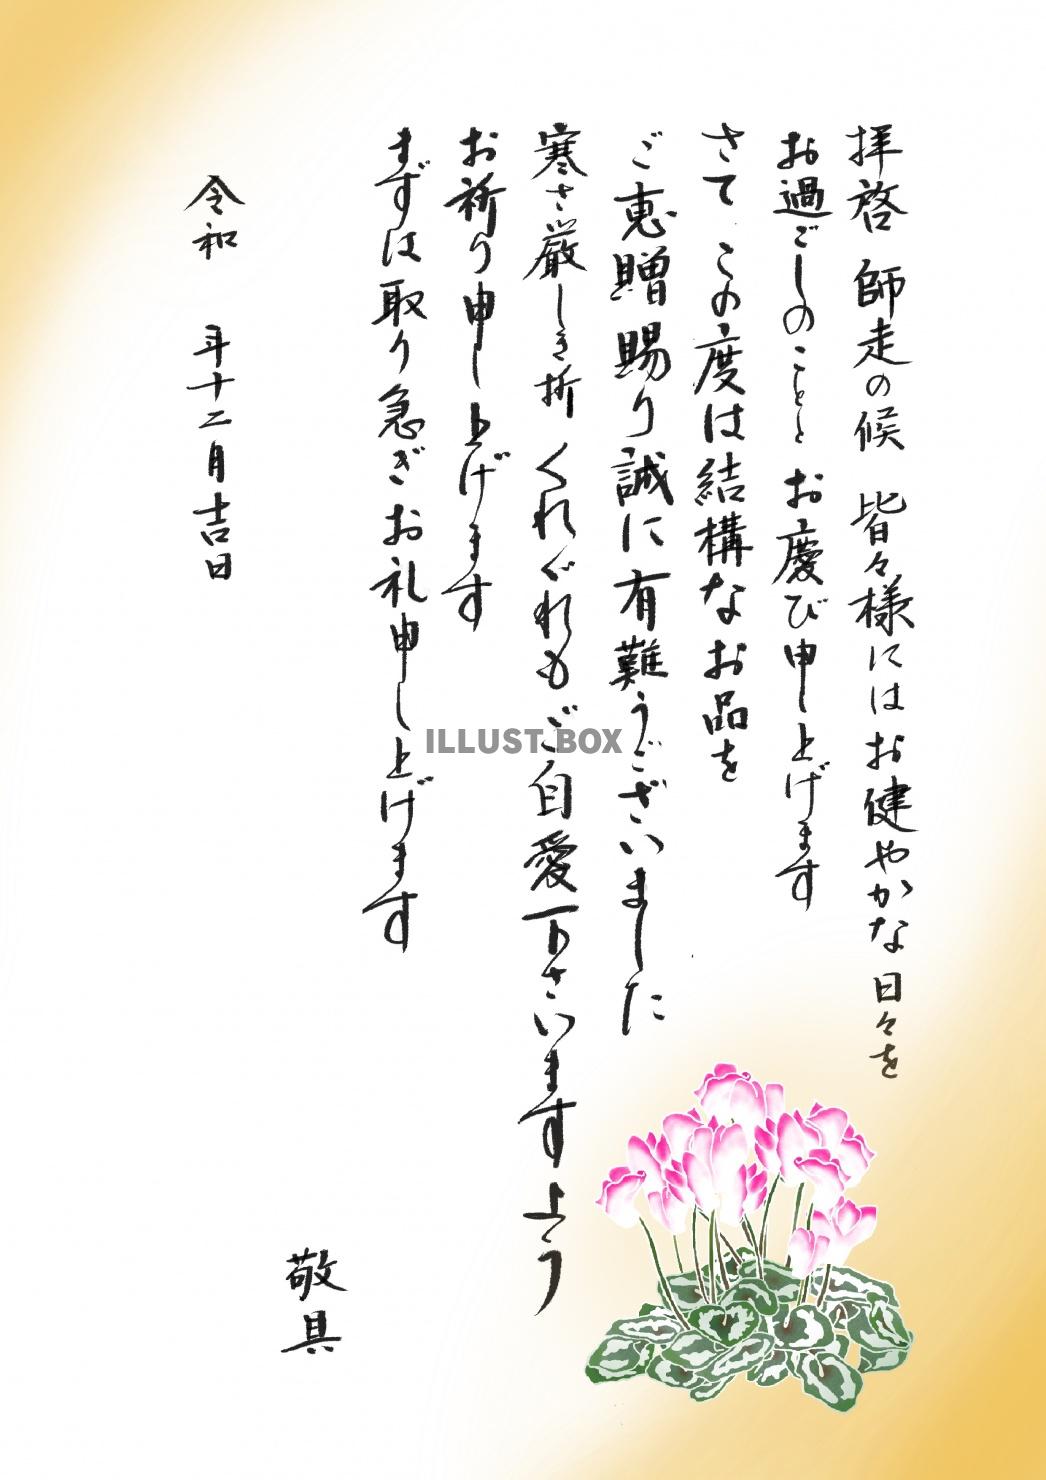 拝啓 師走の候 皆々様にはお健やかな日々を
お過ごしのことと お慶び申し上げます
さて この度は結構なお品を
ご恵贈賜り誠に有難うございました
寒さ厳しき折 くれぐれもご自愛下さいますよう
お祈り申し上げます
まずは取り急ぎお礼申し上げます
敬具
令和 年十二月吉日
ILLUST BOX